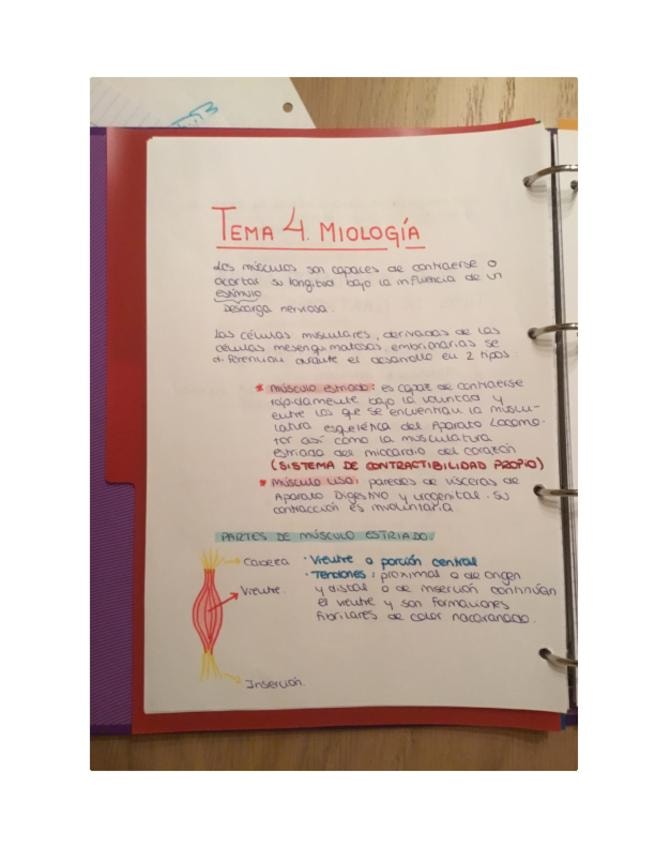 TEMA 4. MIOLOGÍA
Los músculos son capaces de contraerse o
acortar su longitud bajo la influencia de un
estímulo
Descarga nerviosa.
Las células musculares, derivadas de las
células mesenquimatosas embrionarias se
diferencian durante el desarrollo en 2 tipos:
* músculo estriado: es capaz de contraerse
rápidamente bajo la voluntad y
entre los que se encuentran la muscu-
latura esquelética del Aparato Locomo-
tor así como la musculatura
estriada del miocardio del corazón
(SISTEMA DE CONTRACTIBILIDAD PROPIO)
* MÚSCULO LISO: paredes de vísceras de
Aparato Digestivo y urogenital. Su
contracción es involuntaria
PARTES DE MÚSCULO ESTRIADO:
Cabeza
Vientre.
Inserción.
· Vientre o porción central
· Tendones: proximal o de origen
y distal o de inserción continúan
el vientre y son formaciones
fibrilares de color nacaranado.